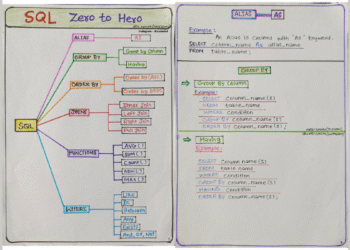 SQL Zero to Hero
ALIAS
AS
GROUP BY
Group by Column
Having
ORDER BY
Order by (ASC)
Order by DESC
JOINS
Inner Join
Left Join
Right Join
Full Join
SQL
FUNCTIONS
AVG( )
SUM( )
COUNT( )
MIN( )
MAX( )
WHERE
Like
In
Between
Any
Exists
And, OR, NOT
ALIAS
AS
Example:
An Alias is Created with 'As' keyword.
SELECT Column_name As alias_name
FROM table_name;
GROUP BY
Group By Column
Example:
SELECT Column_name(s)
FROM table_name
WHERE Condition
GROUP BY Column_name(s)
ORDER BY Column_name(s);
Having
Example:
SELECT Column_name(s)
FROM table_name
WHERE Condition
GROUP BY Column_name(s)
HAVING Condition
ORDER BY Column_name(s);